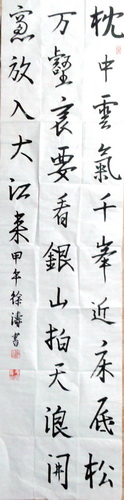 枕中雲氣千峯近床底松
万壑哀要看銀山拍天浪開
窓放入大江来甲午徐濤書